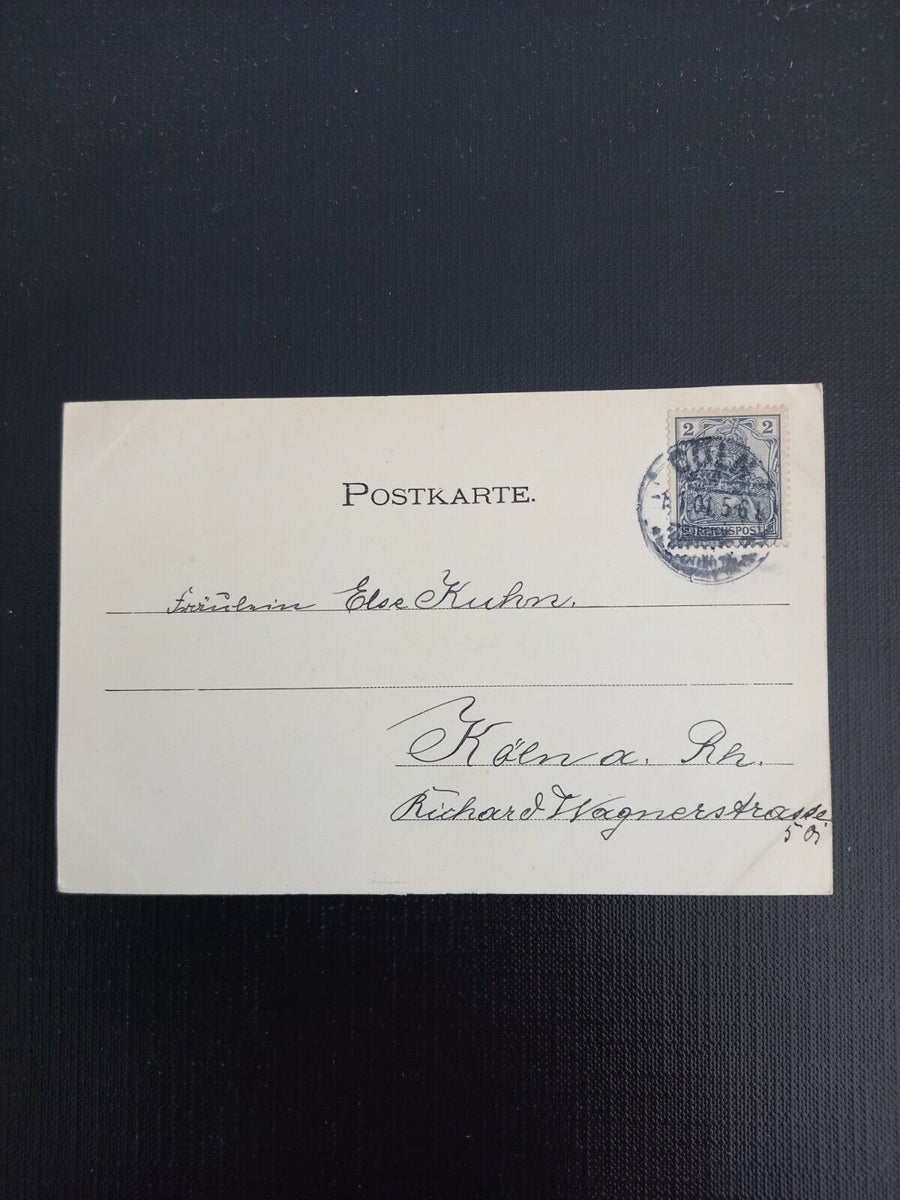 POSTKARTE.
2 2
CÖLN
1.01. 5-6
REICHSPOST
Fräulein Else Kuhn.
Köln a. Rh.
Richard Wagnerstrasse
5